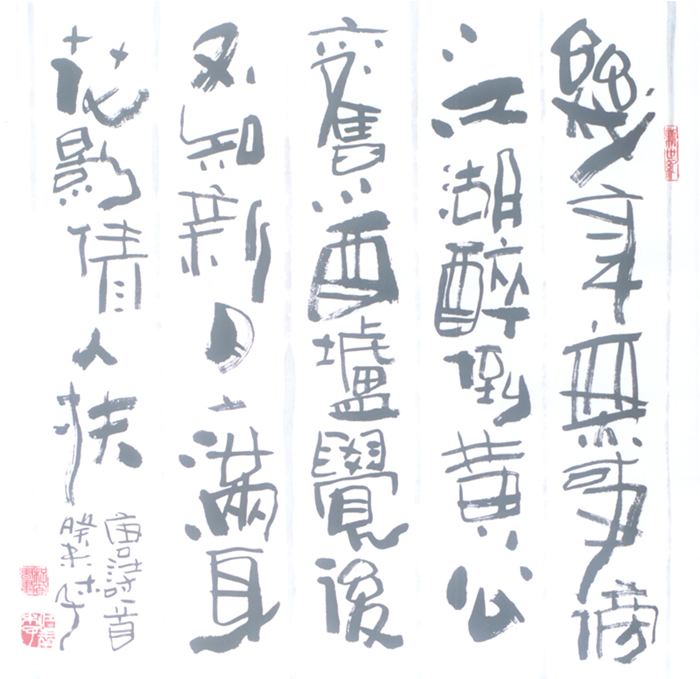 幾年無事傍
江湖醉倒黄公
舊酒壚覺後
不知新月上滿身
花影倩人扶
唐詩一首
癸未